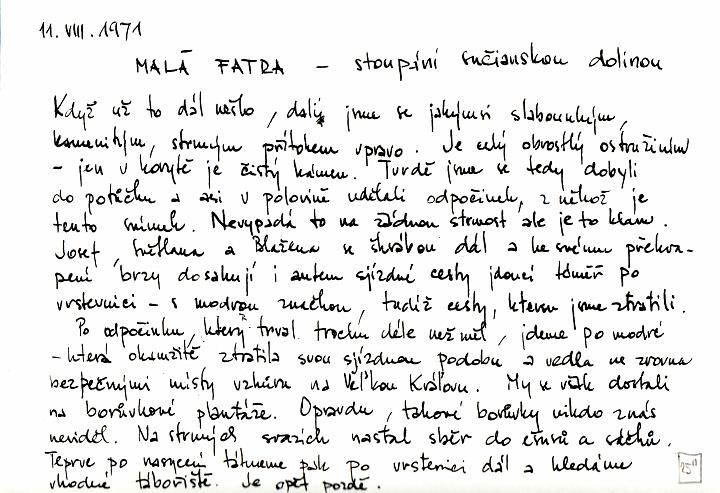 11. VIII. 1971
MALÁ FATRA – stoupání sučianskou dolinou
Když už to dál nešlo, dali jsme se jakýmsi slabounkým,
kamenitým, strmým přítokem vpravo. Je celý obrostlý ostružiním
– jen v korytě je čistý kámen. Tvrdě jsme se tedy dobyli
do potůčku a asi v polovině udělali odpočinek, z něhož je
tento snímek. Nevypadá to na žádnou strmost ale je to klam.
Josef, Světlana a Blažena se škrábou dál a ke svému překva-
pení brzy dosahují i autem sjízdné cesty jdoucí téměř po
vrstevnici – s modrou značkou, tudíž cesty, kterou jsme ztratili.
Po odpočinku, který trval trochu déle než měl, jdeme po modré
– která okamžitě ztratila svou sjízdnou podobu a vedla ne zrovna
bezpečnými místy vzhůru na Veľkou Kráľovu. My se však dostali
na borůvkové plantáže. Opravdu, takové borůvky nikdo z nás
neviděl. Na strmých svazích nastal sběr do ešusů a sáčků.
Teprve po nasycení táhneme pak po vrstevnici dál a hledáme
vhodné tábořiště. Je opět pozdě.